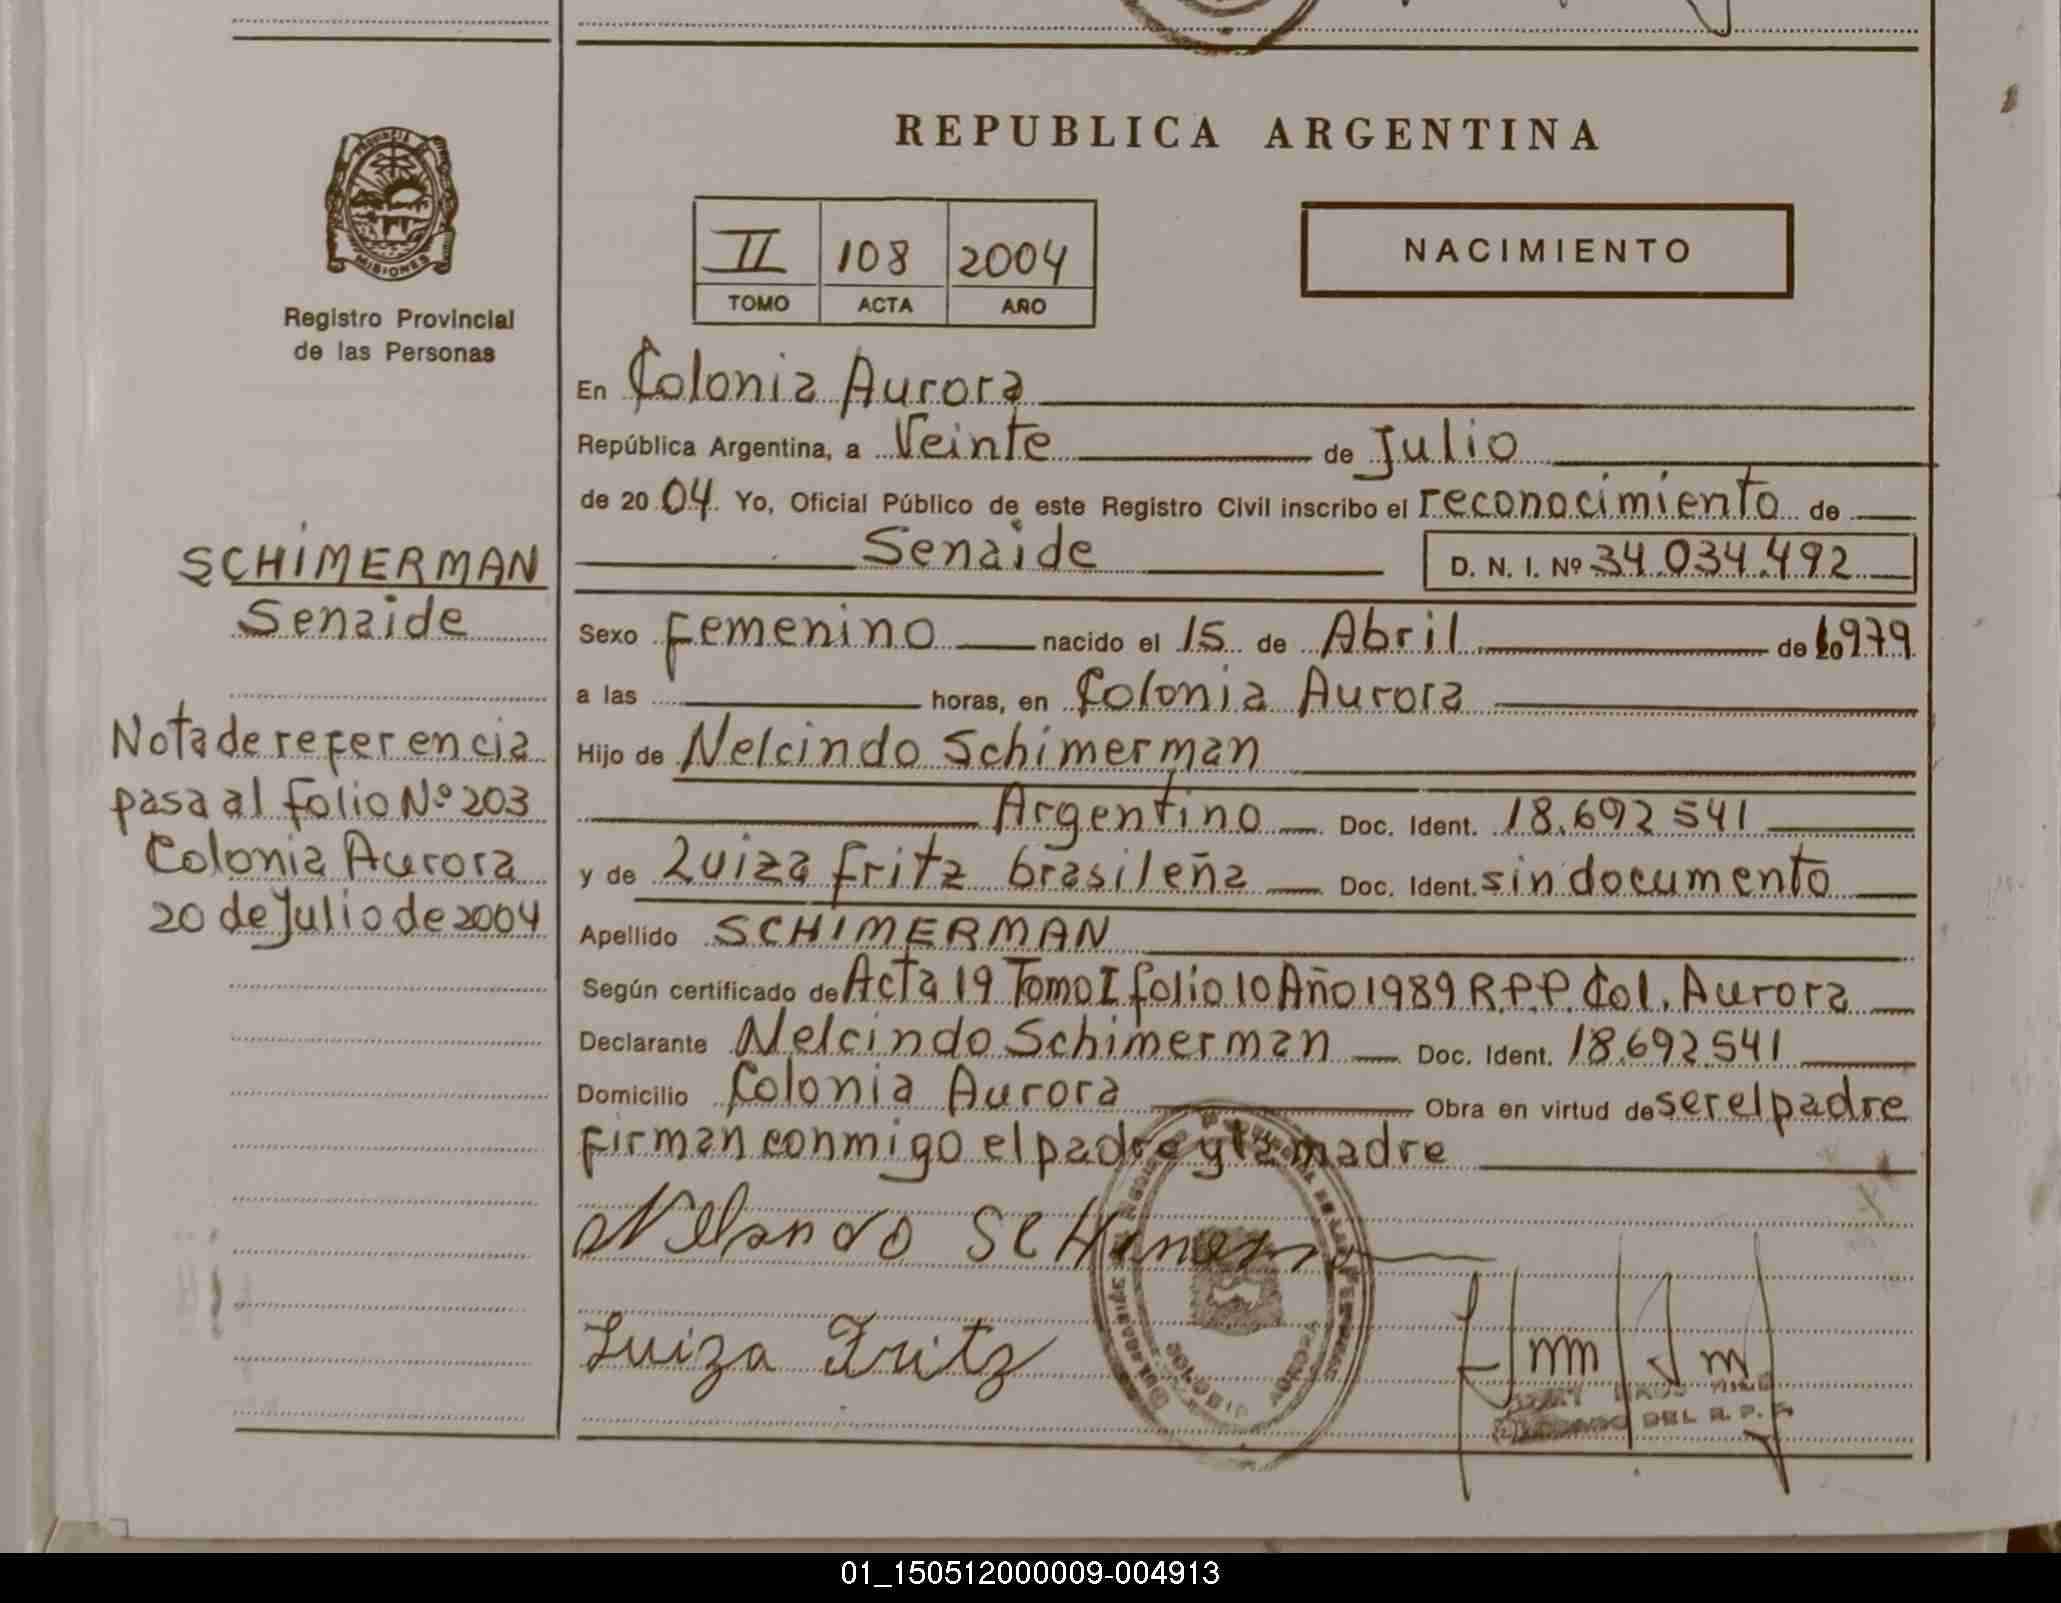 REPUBLICA ARGENTINA
PROVINCIA DE
MISIONES
Registro Provincial
de las Personas
II 108 2004
TOMO ACTA AÑO
NACIMIENTO
En Colonia Aurora
República Argentina, a Veinte de Julio
de 2004. Yo, Oficial Público de este Registro Civil inscribo el reconocimiento de
Senaide D. N. I. Nº 34.034.492
Sexo Femenino nacido el 15 de Abril de 1979
a las horas, en Colonia Aurora
Hijo de Nelcindo Schimerman
Argentino Doc. Ident. 18.692.541
y de Luiza Fritz brasileña Doc. Ident. sin documento
Apellido SCHIMERMAN
Según certificado de Acta 19 Tomo I folio 10 Año 1989 R.P.P. Col. Aurora
Declarante Nelcindo Schimerman Doc. Ident. 18.692.541
Domicilio Colonia Aurora Obra en virtud de ser el padre
Firman conmigo el padre y la madre
Luiza Fritz
DEL R. P. P.
SCHIMERMAN
Senaide
Nota de referencia
pasa al folio Nº 203
Colonia Aurora
20 de Julio de 2004
01_150512000009-004913